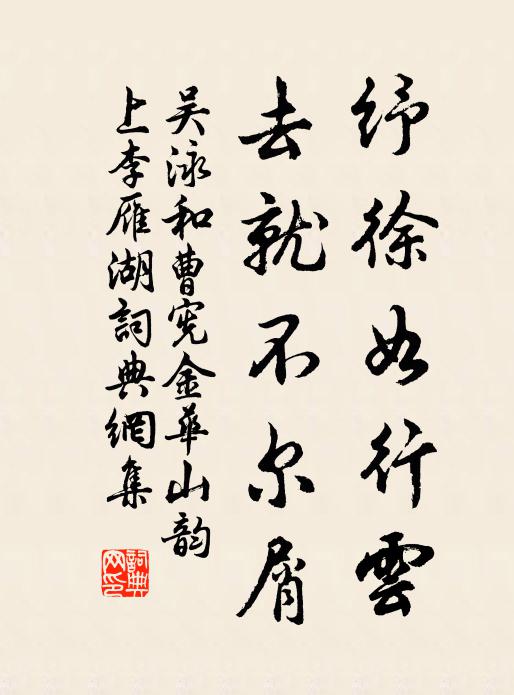 纾徐如行雲
去就不尔屑
吴泳和曹宪金華山韵
上李雁湖詞典網集
詞典
网印